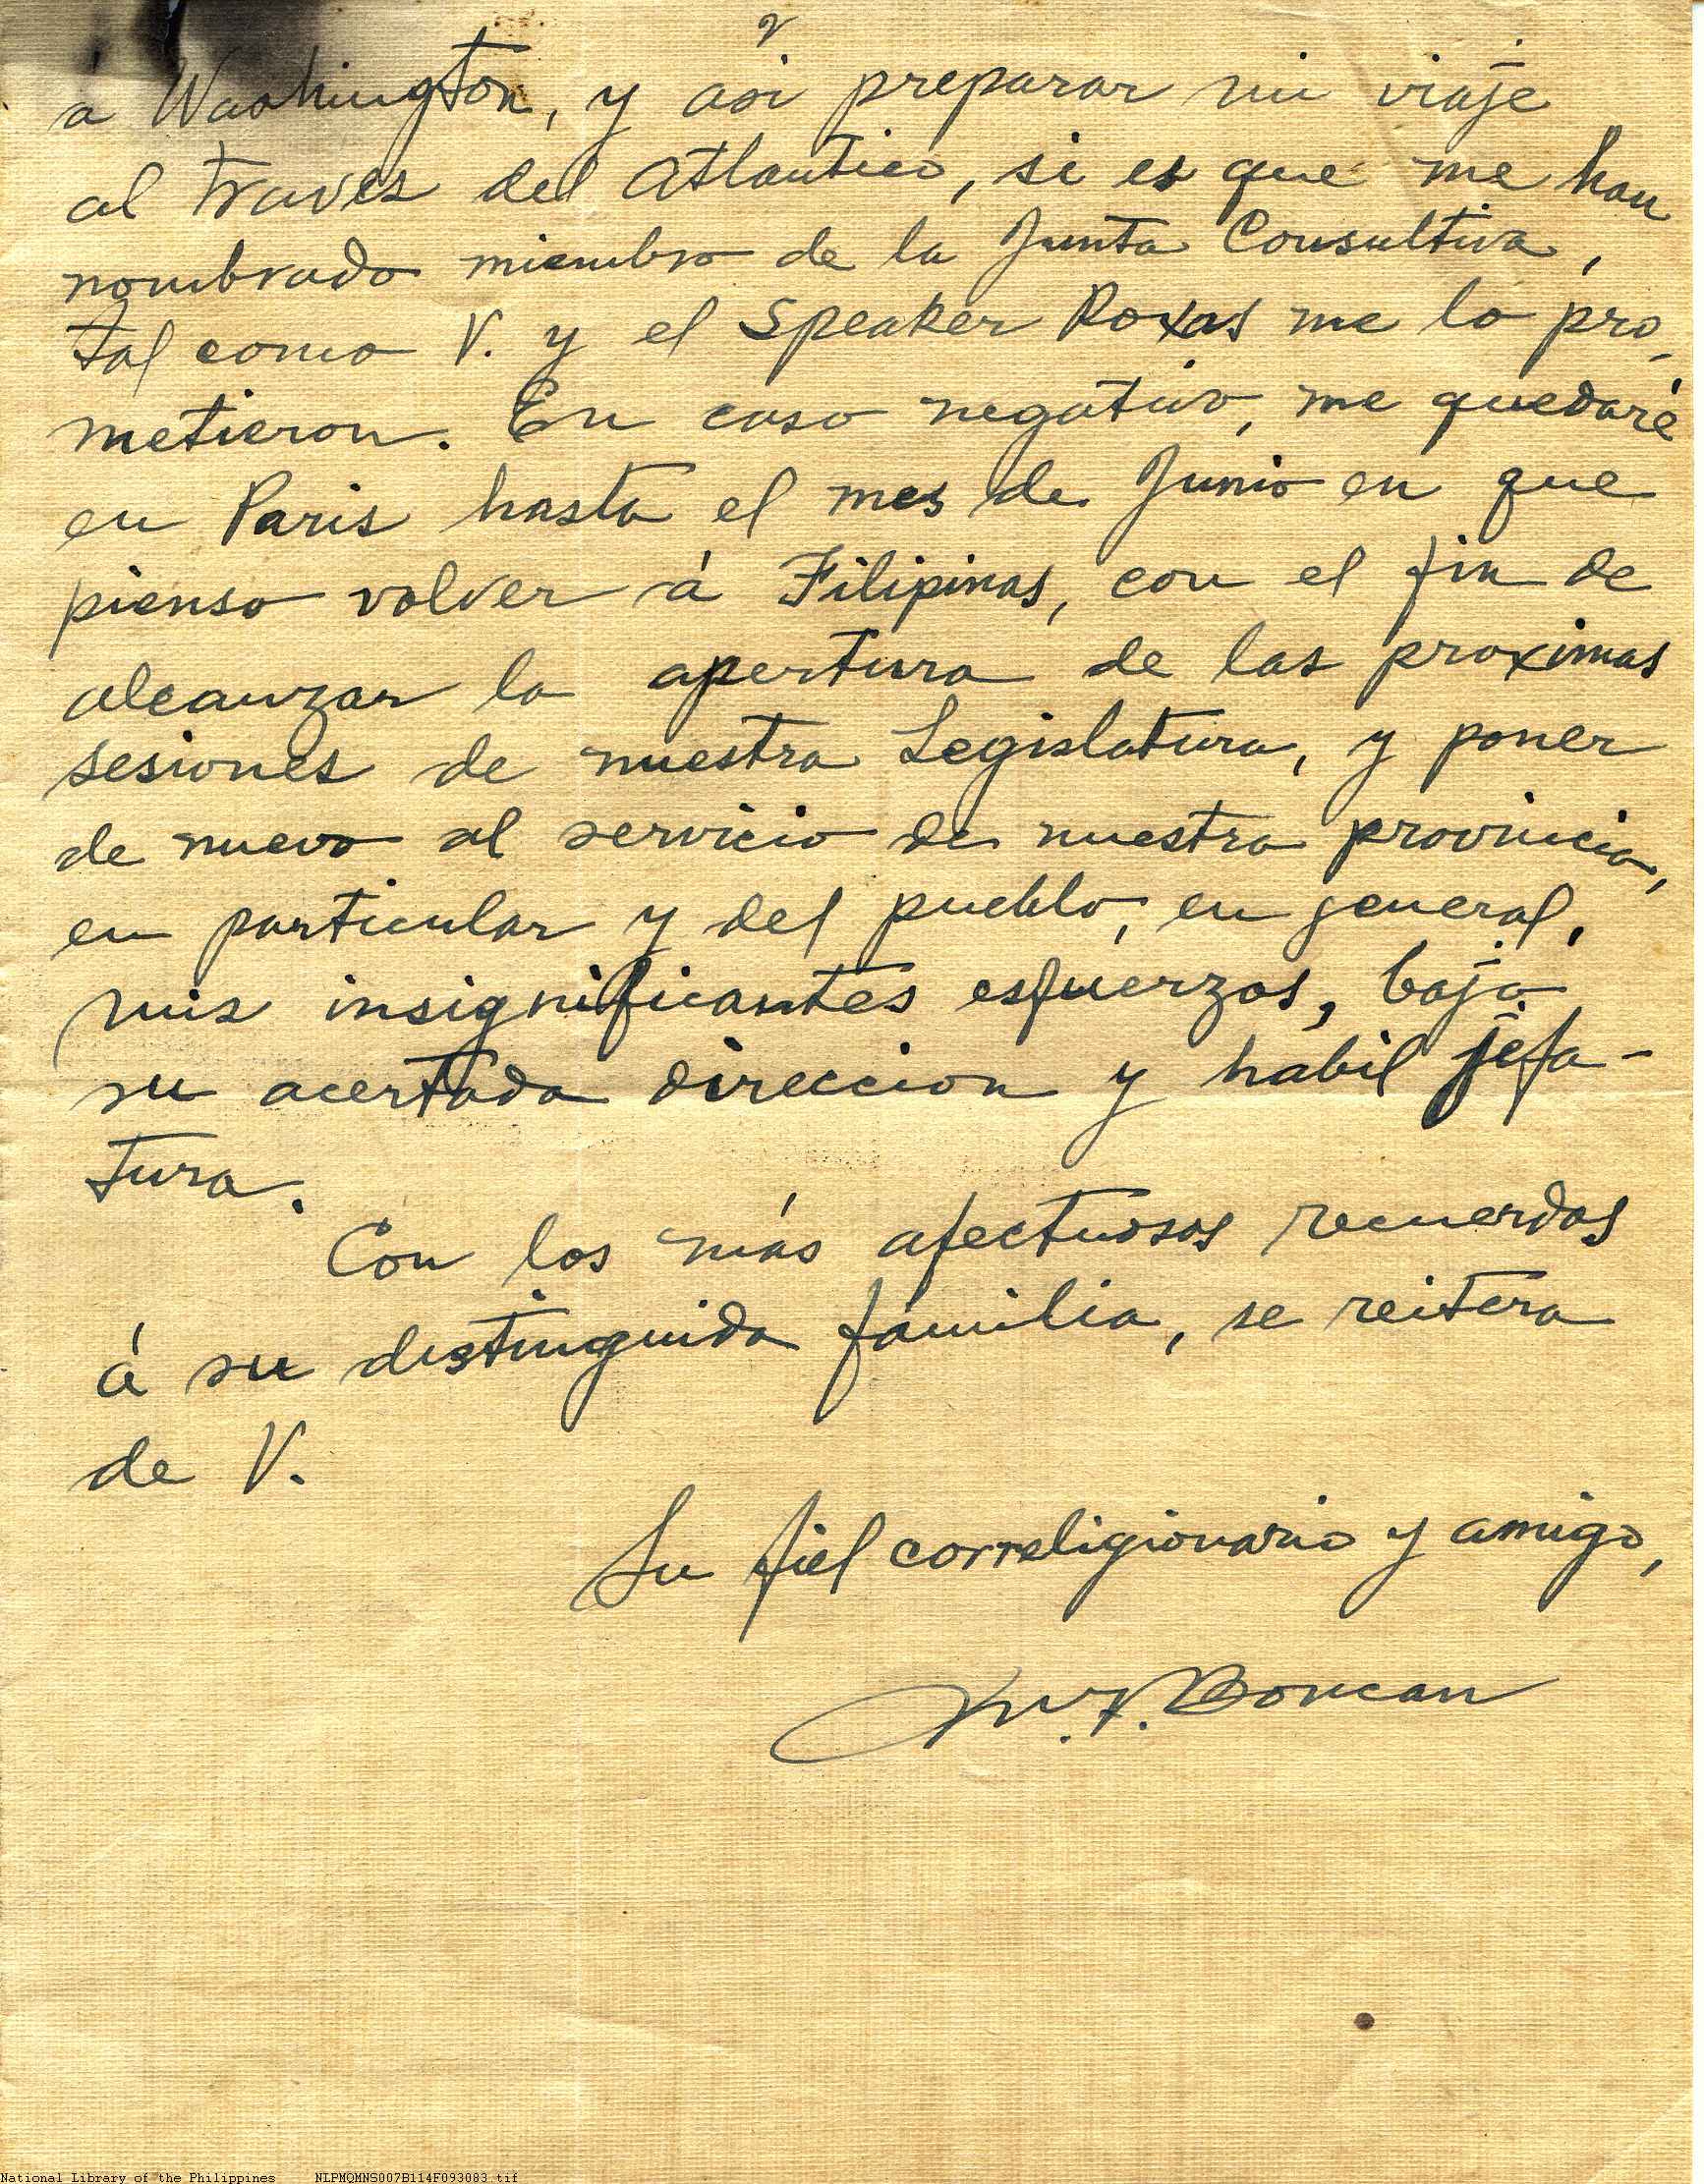 2
á Washington, y asi preparar mi viaje
al traves del Atlantico, si es que me han
nombrado miembro de la Junta Consultiva,
tal como V. y el Speaker Roxas me lo pro-
metieron. En caso negativo, me quedaré
en Paris hasta el mes de Junio en que
pienso volver á Filipinas, con el fin de
alcanzar la apertura de las proximas
sesiones de nuestra Legislatura, y poner
de nuevo al servicio de nuestra provincia,
en particular y del pueblo, en general,
mis insignificantes esfuerzos, bajo
su acertada direccion y habil jefa-
tura.
Con los más afectuosos recuerdos
á su distinguida familia, se reitera
de V.
Su fiel correligionario y amigo,
Boncan
National Library of the Philippines NLPMQMNS007B114F093083.tif